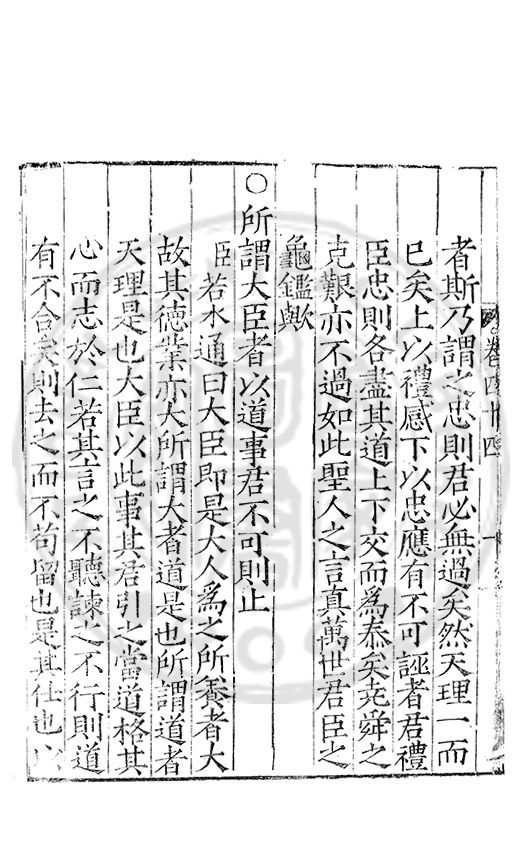 卷四十四
者斯乃謂之忠則君必無過矣然天理一而
已矣上以禮感下以忠應有不可誣者君禮
臣忠則各盡其道上下交而為泰矣堯舜之
克艱亦不過如此聖人之言真萬世君臣之
龜鑑歟
○所謂大臣者以道事君不可則止
臣若水通曰大臣即是大人為之所養者大
故其德業亦大所謂大者道是也所謂道者
天理是也大臣以此事其君引之當道格其
心而志於仁若其言之不聽諫之不行則道
有不合矣則去之而不苟留也是其仕也以